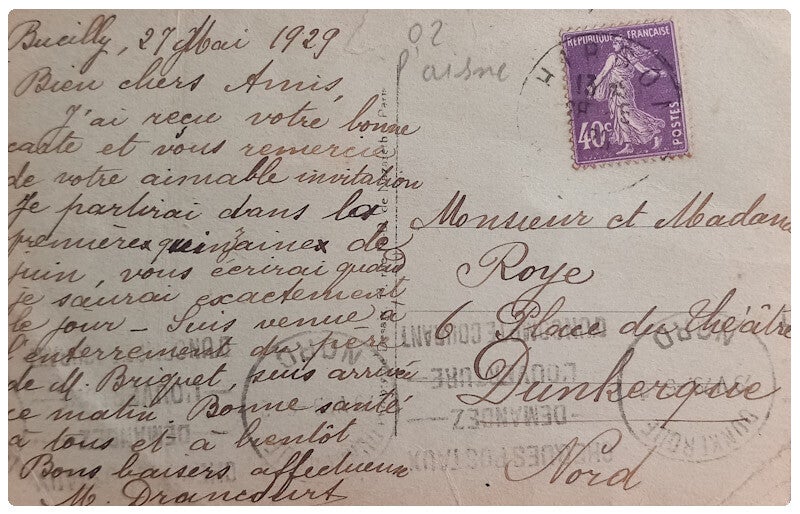 Bucilly, 27 Mai 1929
Bien chers Amis,
J'ai reçu votre bonne
carte et vous remercie
de votre aimable invitation
Je partirai dans la
première quinzaine de
juin, vous écrirai quand
je saurai exactement
le jour - Suis venue à
l'enterrement du père
de M. Briquet, suis arrivée
ce matin. Bonne santé
à tous et à bientôt
Bons baisers affectueux
M. Drancourt
02
l'aisne
REPUBLIQUE FRANÇAISE
40c
POSTES
Monsieur et Madame
Roye
6 Place du Théâtre
Dunkerque
Nord
D'UN COMPTE COURANT
L'OUVERTURE
-DEMANDEZ-
CHEQUES POSTAUX
NORD
DUNKERQUE
NORD